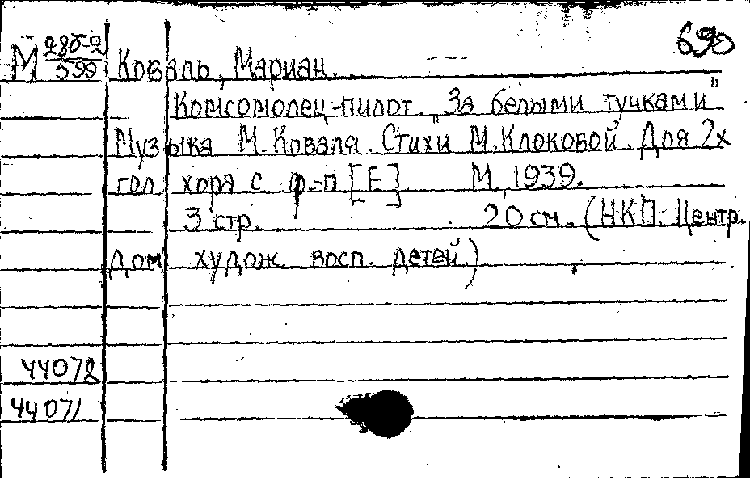 690
М 286-2/599 Коваль, Мариан.
Комсомолец-пилот. "За белыми тучками"
Музыка М. Коваля. Стихи М. Клоковой. Для 2х
гол. хора с ф.-п [Е]. М, 1939.
3 стр. 20 см. (НКП. Центр.
дом худож. восп. детей)
44072
44071